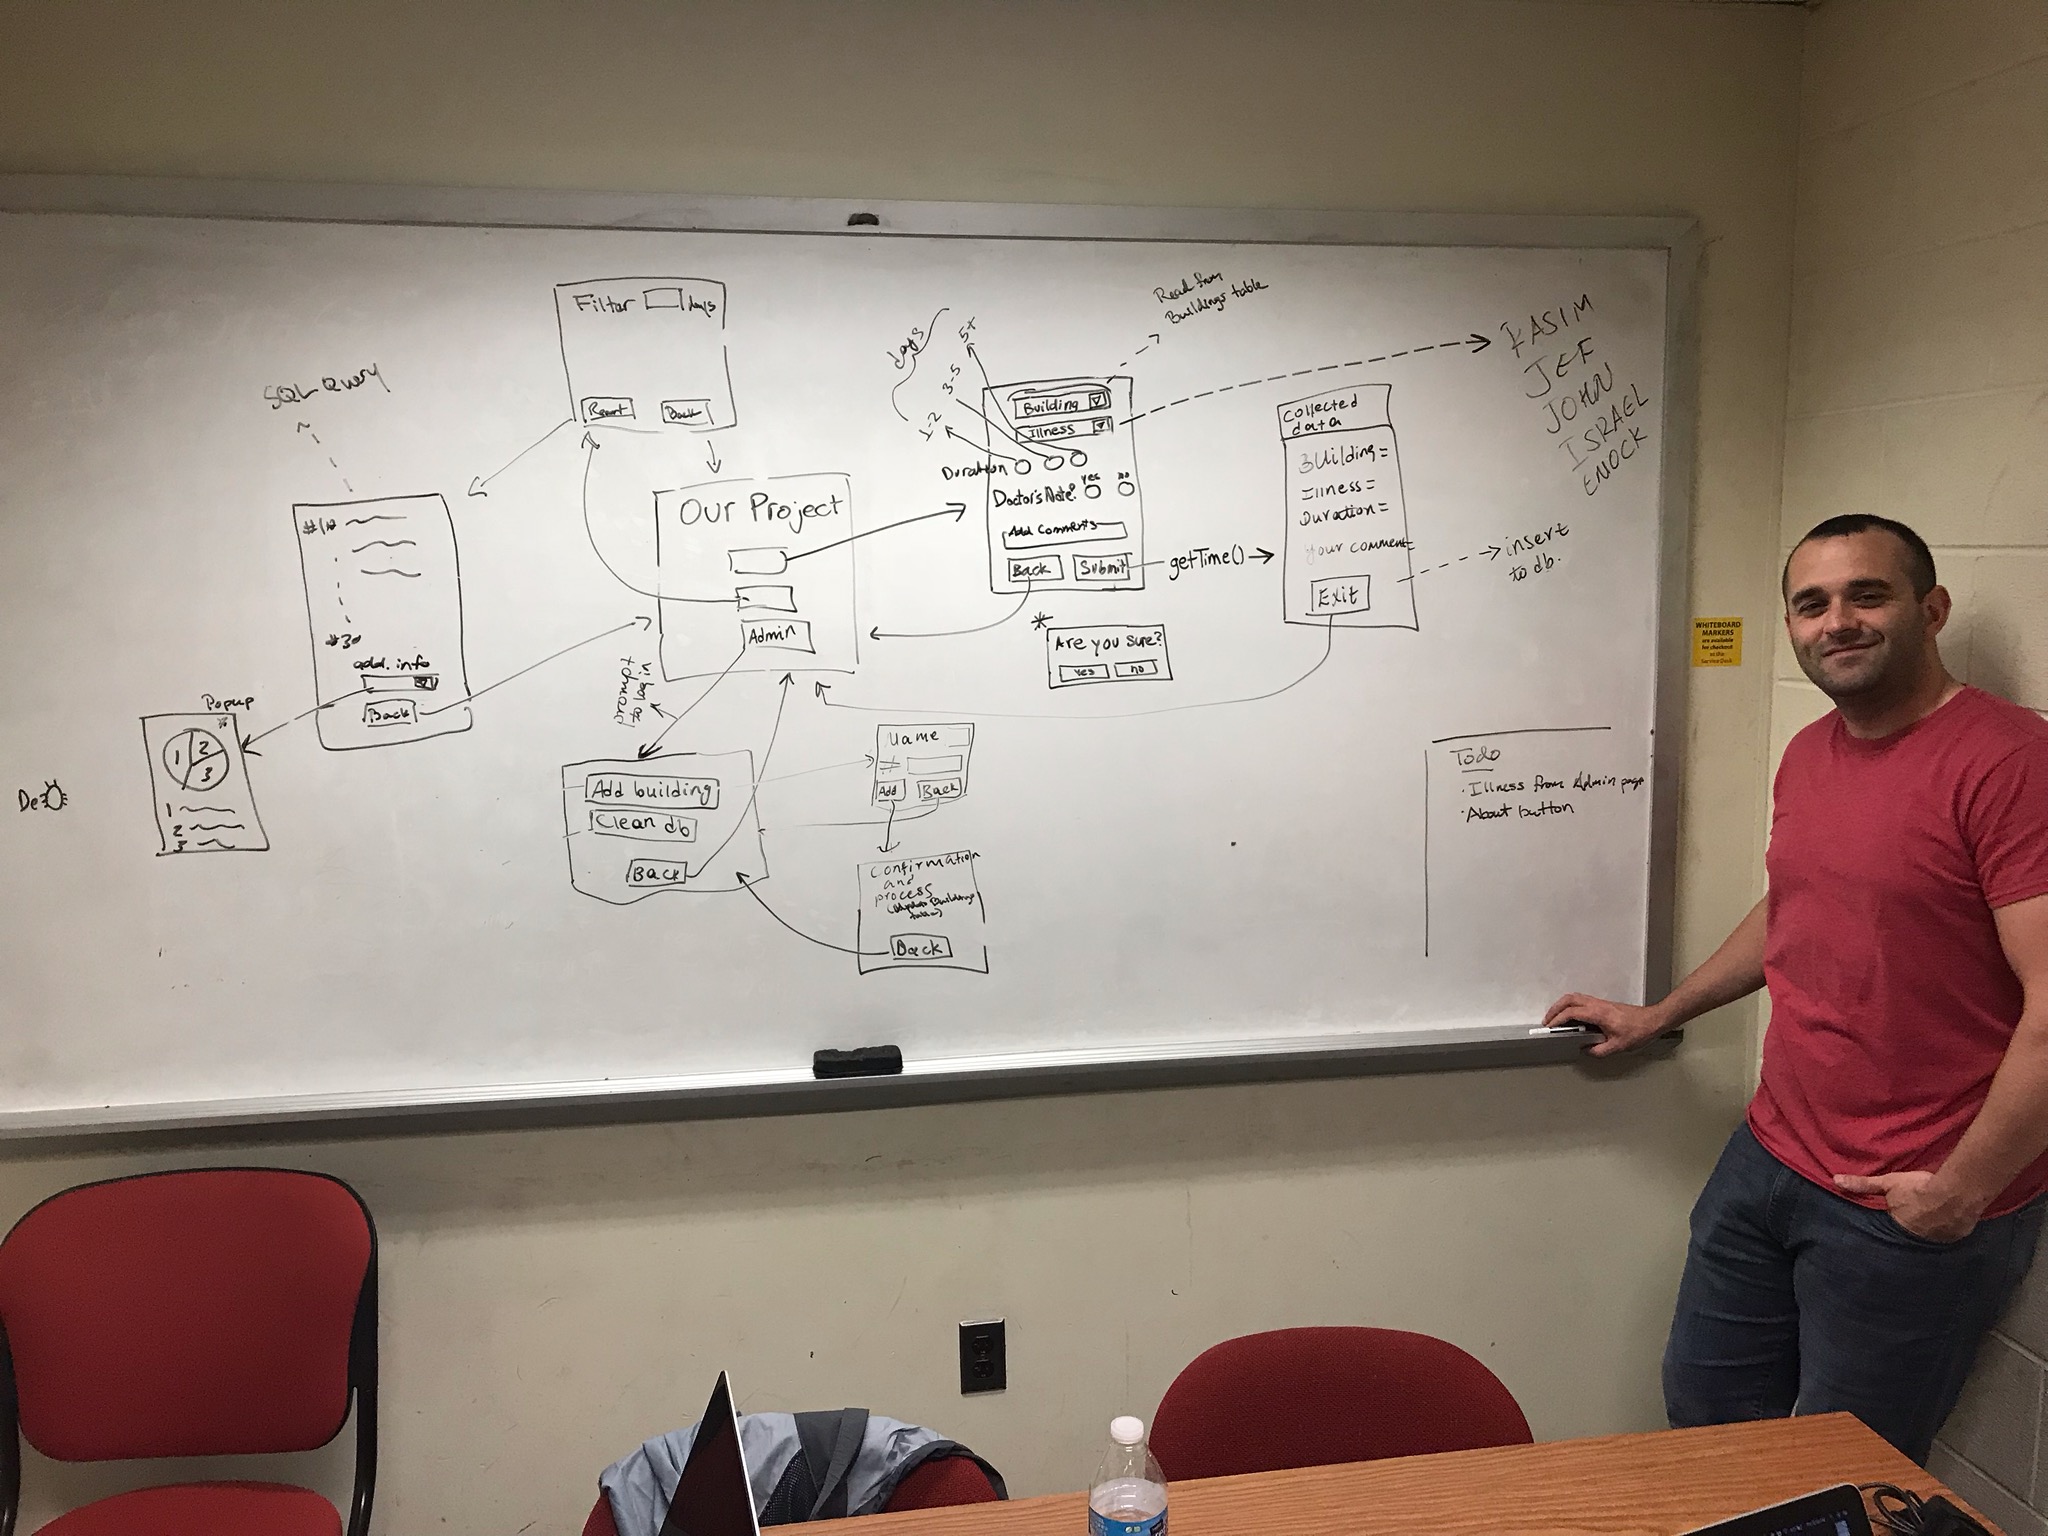 SQL Query
#1
#30
add. info
Back
Popup
1 2
3
1
2
3
De
Filter days
Back
Our Project
Admin
Add building
Clean db
Back
Name
#
Add Back
Confirmation
and
process
Back
days
1-2
3-5
5+
Read from
Buildings table
Building
Illness
Duration
Doctor's Note? yes no
Add Comments
Back Submit
getTime()
*
Are you sure?
yes no
Collected
data
Building=
Illness=
Duration=
your comment=
Exit
insert
to db.
KASIM
JEF
JOHN
ISRAEL
ENOCK
Todo
· Illness from Admin page
· About button
WHITEBOARD
MARKERS
are available
for checkout
at the
Service Desk